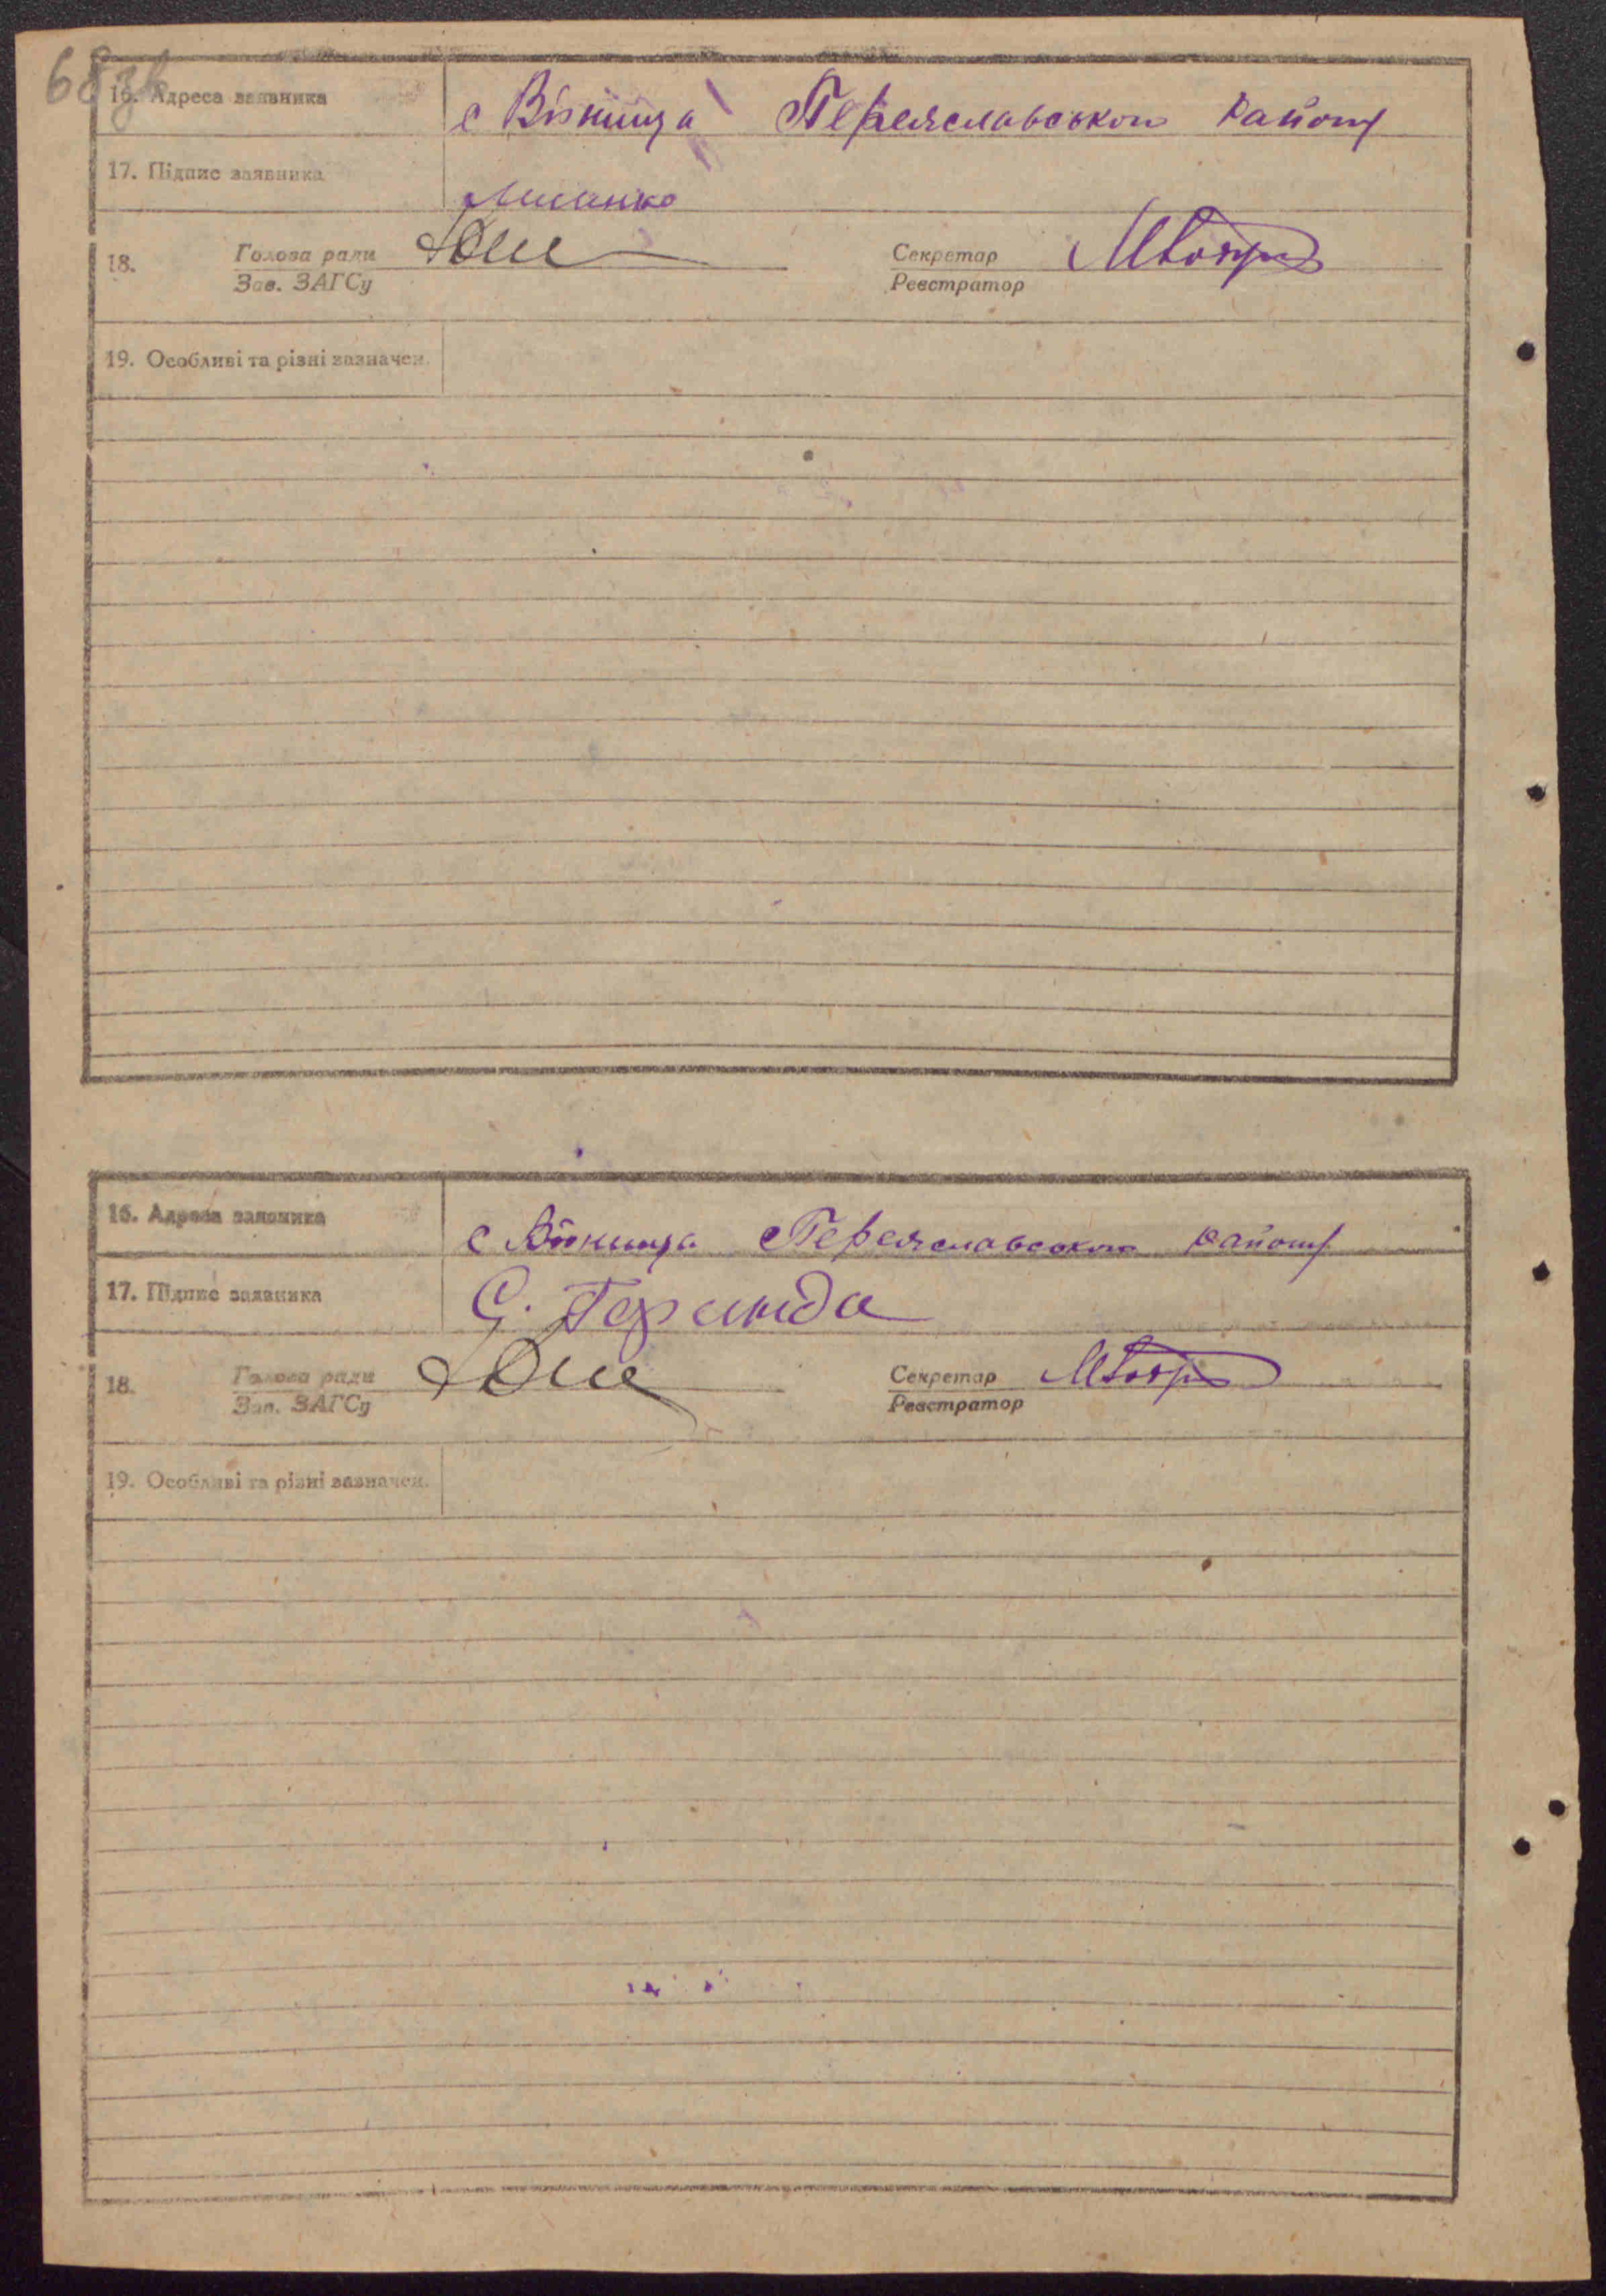 68зв
16. Адреса заявника
с Вінинці Переяславського району
17. Підпис заявника
18. Голова ради Секретар
Зав. ЗАГСу Реєстратор
19. Особливі та різні зазначен.
16. Адреса заявника
Переяславського району
17. Підпис заявника
С.
18. Голова ради Секретар
Зав. ЗАГСу Реєстратор
19. Особливі та різні зазначен.